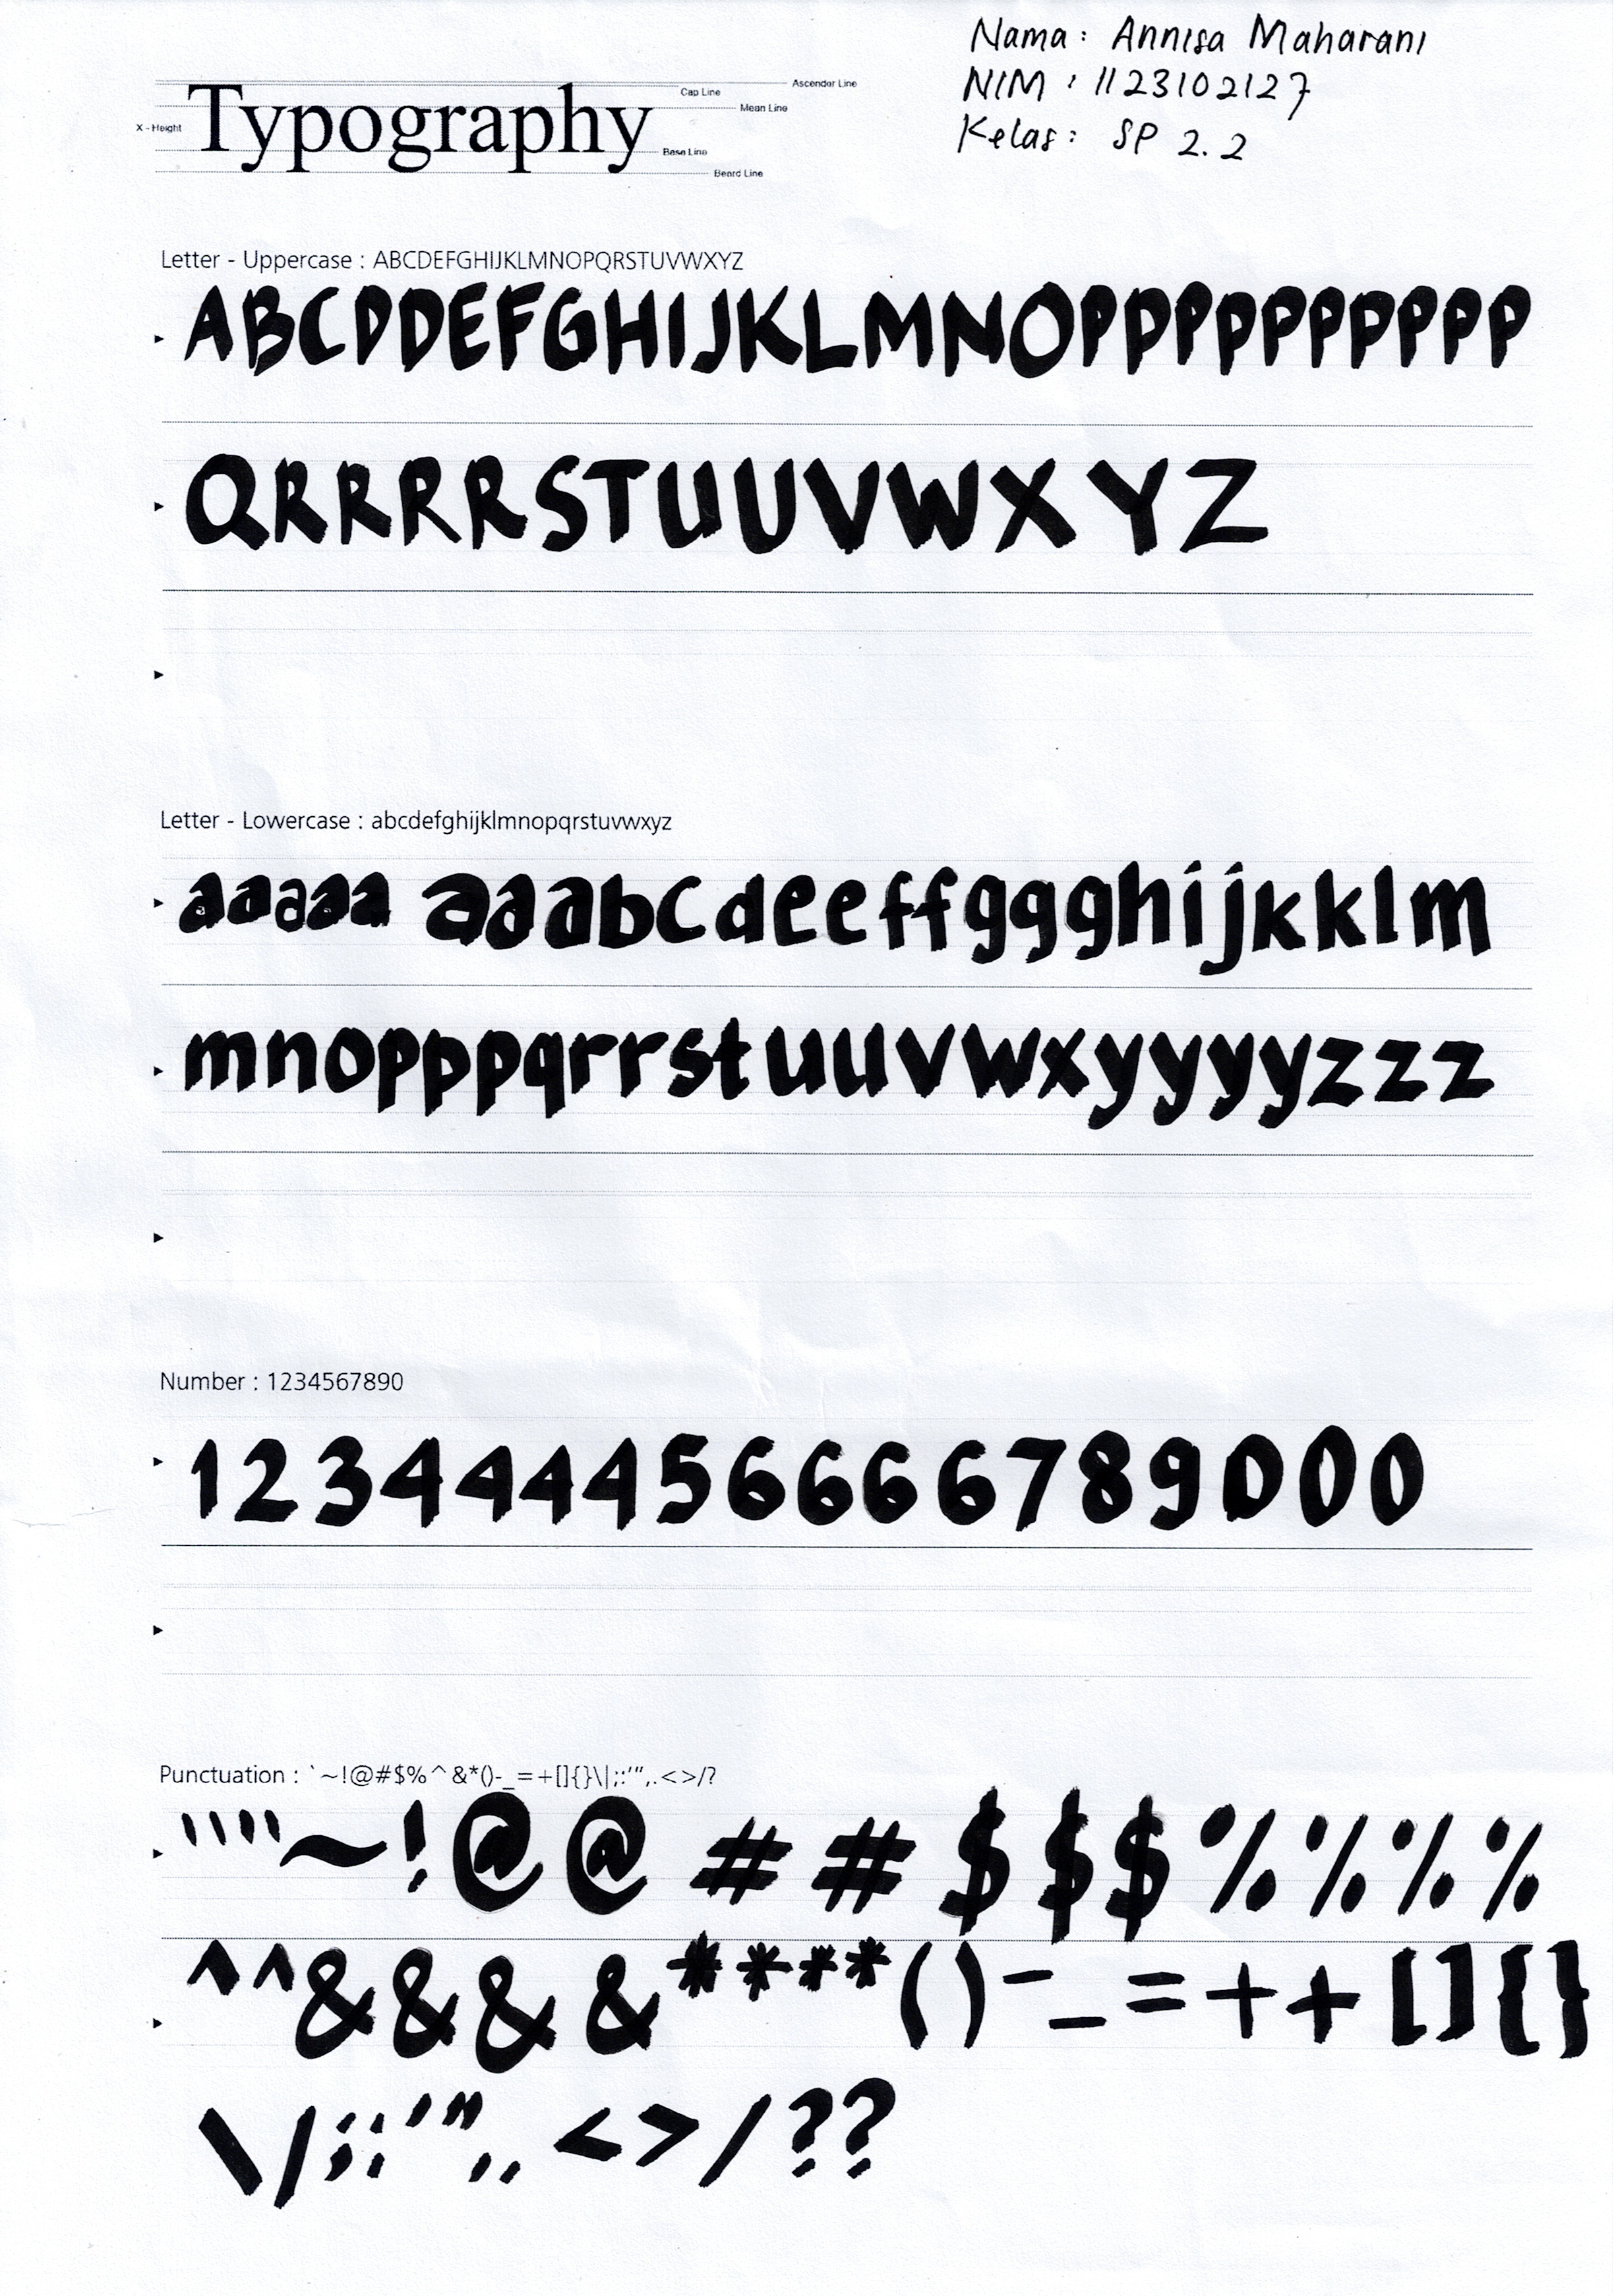 Nama : Annisa Maharani
NIM : 1123102127
Kelas : SP 2.2
Typography
Ascender Line
Cap Line
Mean Line
X - Height
Base Line
Beard Line
Letter - Uppercase : ABCDEFGHIJKLMNOPQRSTUVWXYZ
ABCDDEFGHIJKLMNOPPPPPPPPPP
QRRRRSTUUVWXYZ
Letter - Lowercase : abcdefghijklmnopqrstuvwxyz
aaaaa aaabcdeeffggghijkklm
mnopppqrrstuuvwxyyyyzzz
Number : 1234567890
123444456666789000
Punctuation : `~!@#$%^&*()-_=+[]{}\|;:'",.<>/?
''''~!@@##$$$%%%%
^^&&&&****()-_=++[]{}
\/;:'",.<>/??